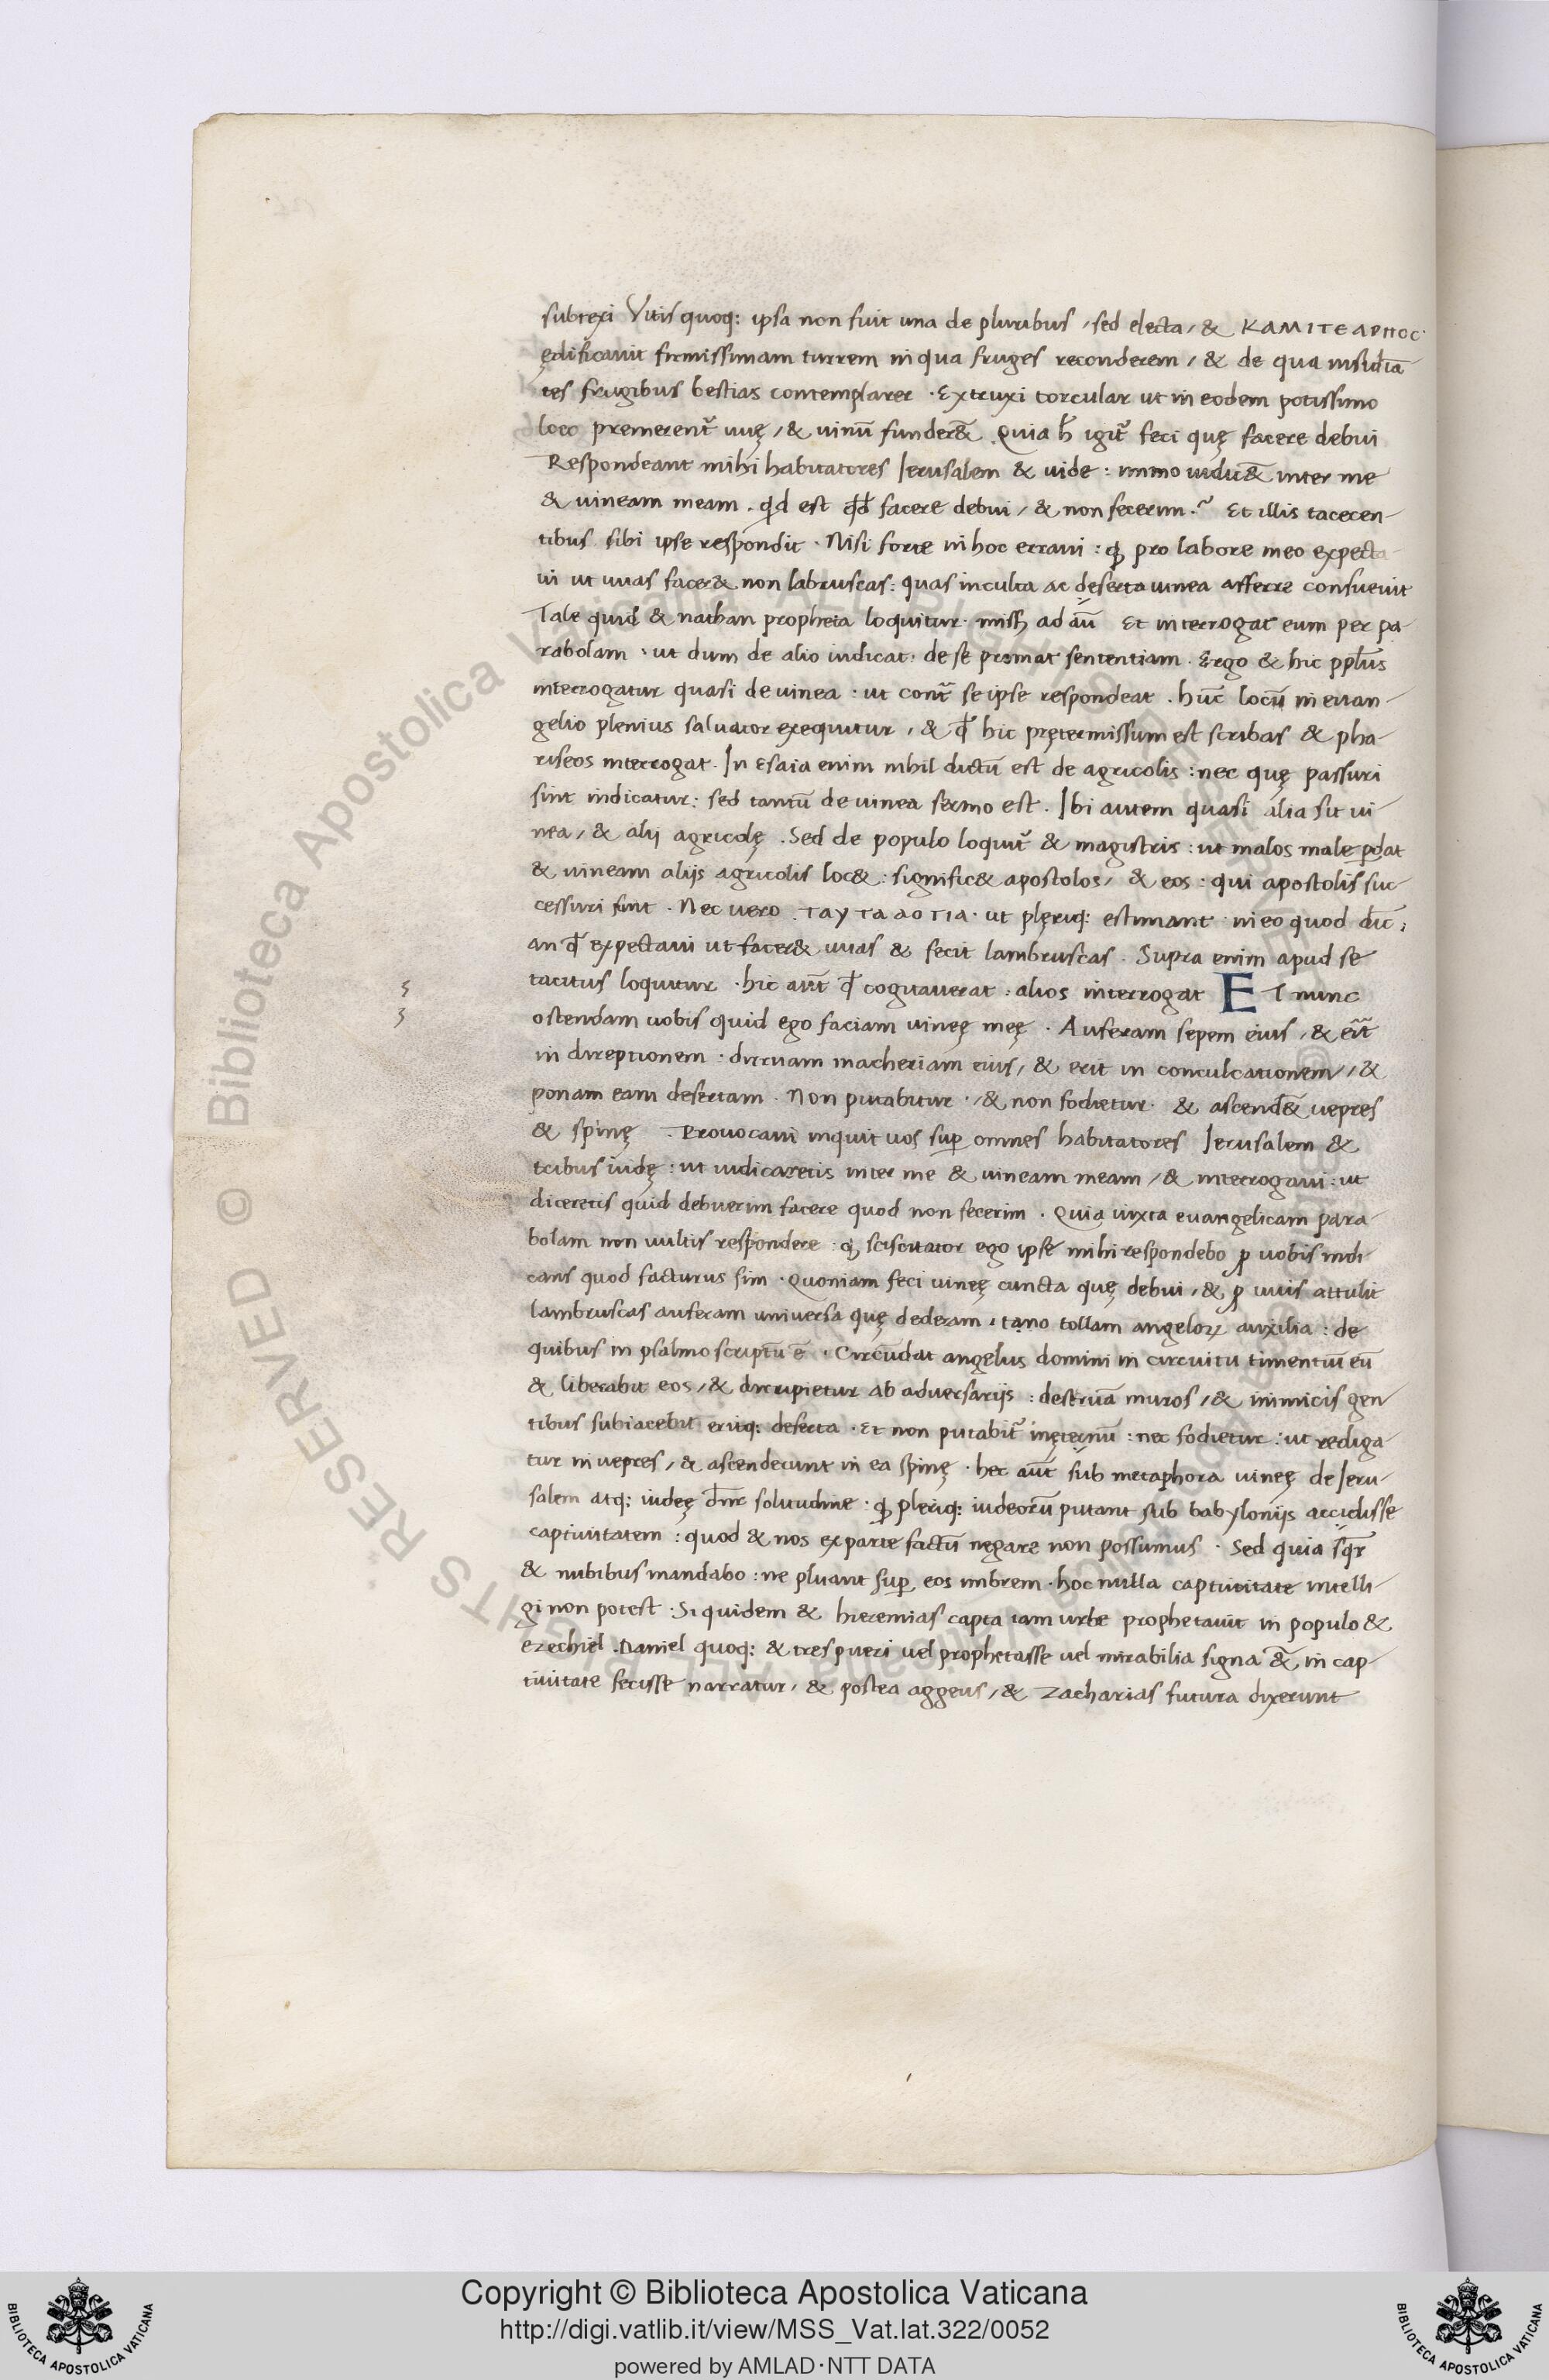 subrexi Vitis quoq: ipsa non fuit una de pluribus / sed electa / & ΚΑΜΙΤΕΑΡΠΟC·
ędificauit firmissimam turrem in qua fruges reconderem / & de qua insidiā
tes frugibus bestias contemplarer · Extruxi torcular ut in eodem potissimo
loco premerent᷑ uuę / & uinū funder& . Quia h̄ igit᷑ feci quę facere debui
Respondeant mihi habitatores Ierusalem & uide : immo iudic& inter me
& uineam meam . qd est qđ facere debui / & non fecerim .~ Et illis tacecen-
tibus sibi ipse respondit · Nisi forte in hoc erraui : ꝙ pro labore meo expecta-
ui ut uuas facer& non labruscas : quas inculta ac deserta uinea afferre consueuit
Tale quid & nathan propheta loquitur · ad Et interrogat eum per pa-
rabolam · ut dum de alio iudicat · de se promat sententiam . Ergo & hic pp̄lus
interrogatur quasi de uinea · ut cont᷑ se ipse respondeat . hūc locū in euan-
gelio plenius saluator exequitur / & qđ hic prętermissum est scribas & pha-
riseos interrogat . In Esaia enim nihil dictū est de agricolis : nec quę passuri
sint indicatur : sed tantū de uinea sermo est . Ibi autem quasi alia sit ui-
nea / & alij agricolę . Sed de populo loquit᷑ & magistris : ut malos male ꝑdat
& uineam alijs agricolis loc& : signific& apostolos / & eos : qui apostolis suc-
cessuri sunt . Nec uero . ΤΑΥΤΑΛΟΓΙΑ · ut plęriq: estimant · in eo quod dīc ;
an qđ expectaui ut facer& uuas & fecit lambruscas . Supra enim apud se
tacitus loquitur · hic aūt qđ cogitauerat : alios interrogat ET nunc
ostendam uobis quid ego faciam uineę meę · Auferam sepem eius / & erit
in direptionem · diruam macheriam eius / & erit in conculcationem / &
ponam eam desertam . Non putabitur · / & non fodietur · & ascend& uepres
& spinę . Prouocaui inquit uos suꝑ omnes habitatores Ierusalem &
tribus iudę : ut iudicaretis inter me & uineam meam / & interrogaui : ut
diceretis quid debuerim facere quod non fecerim . Quia iuxta euangelicam para-
bolam non uultis respondere : ꝙ sciscitator ego ipse mihi respondebo ꝓ uobis indi
cans quod facturus sim · Quoniam feci uineę cuncta quę debui / & ꝓ uuis attulit
lambruscas auferam uniuersa quę dederam · tollam angeloꝝ auxilia : de
quibus in psalmo scriptū ē · Circūdat angelus domini in circuitu timentiū eū
& liberabit eos / & diripietur ab aduersarijs : destruā muros / & inimicis gen
tibus subiacebit eritq: deserta · Et non putabit᷑ inęternū : nec fodietur : ut rediga-
tur in uepres / & ascenderunt in ea spinę · hec aūt sub metaphora uineę de Ieru-
salem atq: iudeę dīnr solitudine · ꝙ pleriq: iudeorū putant sub babyloniis accidisse
captiuitatem : quod & nos ex parte factū negare non possumus · Sed quia sqr̄
& nubibus mandabo : ne pluant suꝑ eos imbrem · hoc nulla captiuitate intelli-
gi non potest · Si quidem & hieremias capta iam urbe prophetauit in populo &
ezechiel . Daniel quoq: & tres pueri uel prophetasse uel mirabilia signa & in cap-
tiuitate fecisse narratur / & postea aggeus / & Zacharias futura dixerunt
© Biblioteca Apostolica Vaticana ALL RIGHTS RESERVED
Copyright © Biblioteca Apostolica Vaticana
http://digi.vatlib.it/view/MSS_Vat.lat.322/0052
powered by AMLAD·NTT DATA
BIBLIOTECA APOSTOLICA VATICANA
BIBLIOTECA APOSTOLICA VATICANA